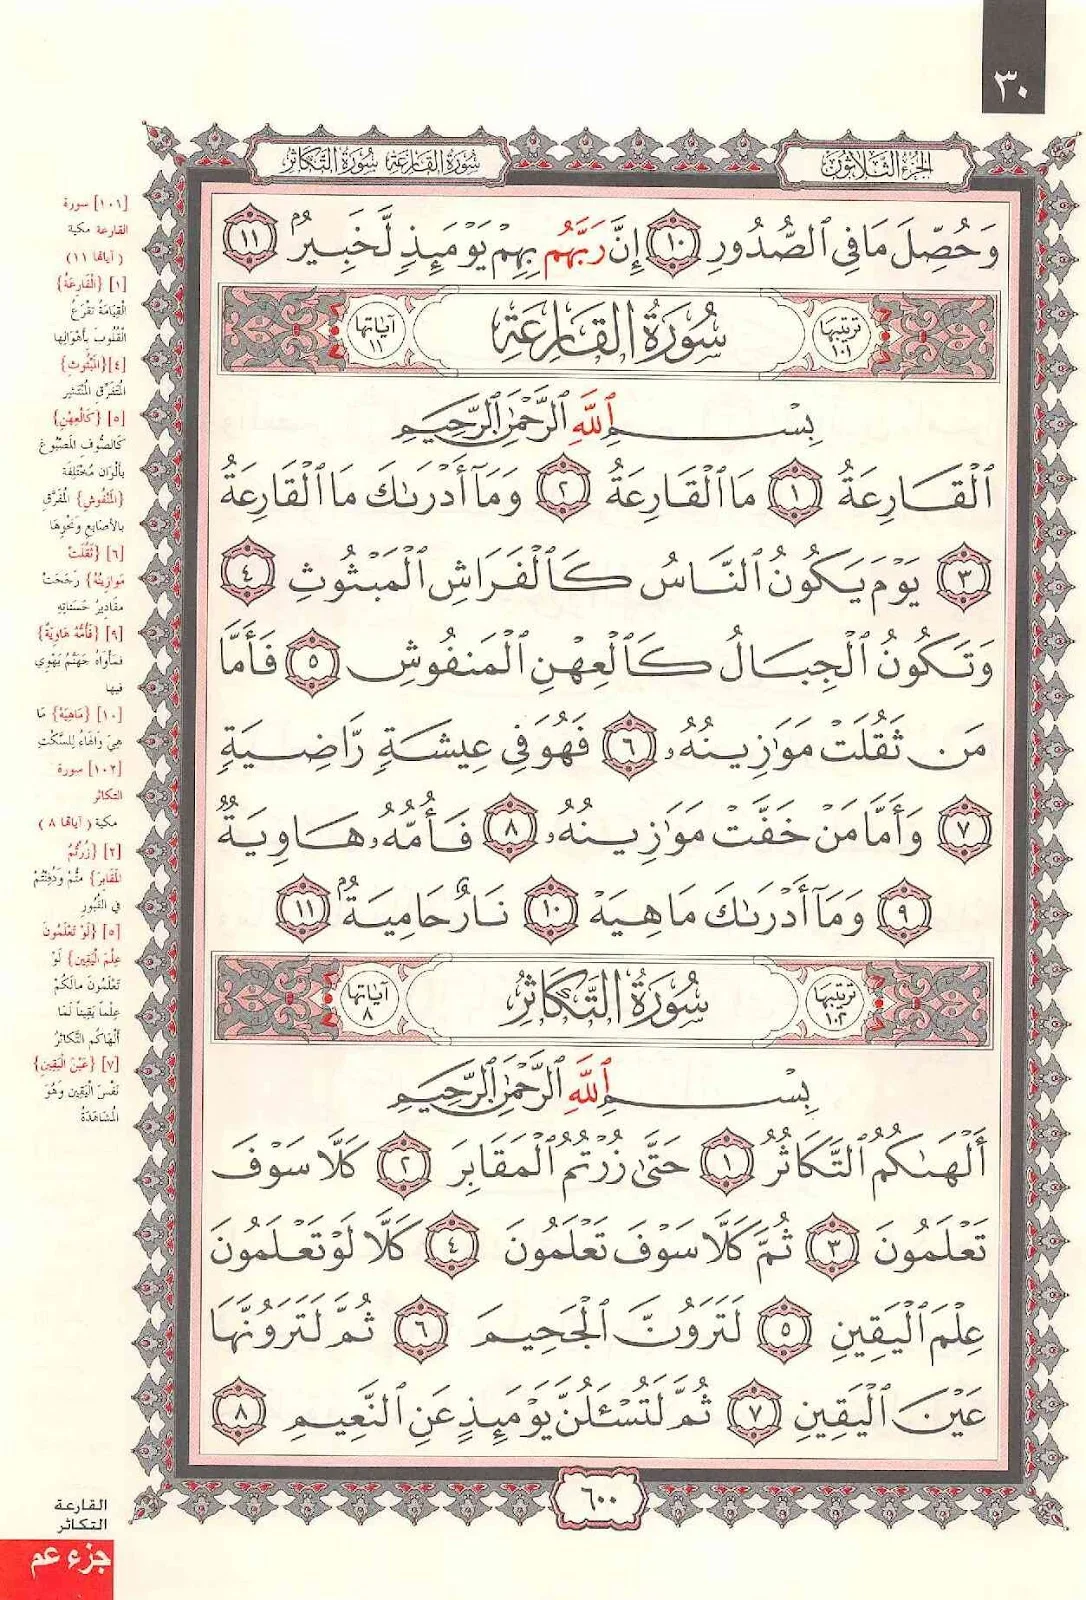 ٣٠
الجزء الثلاثون
سورة القارعة سورة التكاثر
وَحُصِّلَ مَا فِي ٱلصُّدُورِ ١٠ إِنَّ رَبَّهُم بِهِمْ يَوْمَئِذٍ لَّخَبِيرٌۢ ١١
ترتيبها ١٠١ سُورَةُ القَارِعَةِ آياتها ١١
بِسْمِ ٱللَّهِ ٱلرَّحْمَٰنِ ٱلرَّحِيمِ
ٱلْقَارِعَةُ ١ مَا ٱلْقَارِعَةُ ٢ وَمَآ أَدْرَىٰكَ مَا ٱلْقَارِعَةُ
٣ يَوْمَ يَكُونُ ٱلنَّاسُ كَٱلْفَرَاشِ ٱلْمَبْثُوثِ ٤
وَتَكُونُ ٱلْجِبَالُ كَٱلْعِهْنِ ٱلْمَنفُوشِ ٥ فَأَمَّا
مَن ثَقُلَتْ مَوَٰزِينُهُۥ ٦ فَهُوَ فِي عِيشَةٍ رَّاضِيَةٍ
٧ وَأَمَّا مَنْ خَفَّتْ مَوَٰزِينُهُۥ ٨ فَأُمُّهُۥ هَاوِيَةٌ
٩ وَمَآ أَدْرَىٰكَ مَا هِيَهْ ١٠ نَارٌ حَامِيَةٌۢ ١١
ترتيبها ١٠٢ سُورَةُ التَّكَاثُرِ آياتها ٨
بِسْمِ ٱللَّهِ ٱلرَّحْمَٰنِ ٱلرَّحِيمِ
أَلْهَىٰكُمُ ٱلتَّكَاثُرُ ١ حَتَّىٰ زُرْتُمُ ٱلْمَقَابِرَ ٢ كَلَّا سَوْفَ
تَعْلَمُونَ ٣ ثُمَّ كَلَّا سَوْفَ تَعْلَمُونَ ٤ كَلَّا لَوْ تَعْلَمُونَ
عِلْمَ ٱلْيَقِينِ ٥ لَتَرَوُنَّ ٱلْجَحِيمَ ٦ ثُمَّ لَتَرَوُنَّهَا
عَيْنَ ٱلْيَقِينِ ٧ ثُمَّ لَتُسْـَٔلُنَّ يَوْمَئِذٍ عَنِ ٱلنَّعِيمِ ٨
٦٠٠
[١٠١] سورة
القارعة مكية
(آياتها ١١)
[١] {الْقَارِعَةُ}
القِيَامَةُ تَقْرَعُ
القُلُوبَ بِأَهْوَالِهَا
[٤] {الْمَبْثُوثِ}
المُتَفَرِّقِ المُنْتَشِرِ
[٥] {كَالْعِهْنِ}
كَالصُّوفِ المَصْبُوغِ
بِأَلْوَانٍ مُخْتَلِفَةٍ
{الْمَنْفُوشِ} المُفَرَّقِ
بِالأَصَابِعِ وَنَحْوِهَا
[٦] {ثَقُلَتْ
مَوَازِينُهُ} رَجَحَتْ
مَقَادِيرُ حَسَنَاتِهِ
[٩] {فَأُمُّهُ هَاوِيَةٌ}
فَمَأْوَاهُ جَهَنَّمُ يَهْوِي
فِيهَا
[١٠] {مَاهِيَهْ} مَا
هِيَ وَالهَاءُ لِلسَّكْتِ
[١٠٢] سورة
التكاثر
مكية (آياتها ٨)
[٢] {زُرْتُمُ
المَقَابِرَ} مُتُّمْ وَدُفِنْتُمْ
فِي القُبُورِ
[٥] {لَوْ تَعْلَمُونَ
عِلْمَ الْيَقِينِ} لَوْ
تَعْلَمُونَ مَآلَكُمْ
عِلْماً يَقِيناً لَمَا
أَلْهَاكُمُ التَّكَاثُرُ
[٧] {عَيْنَ الْيَقِينِ}
نَفْسَ الْيَقِينِ وَهُوَ
المُشَاهَدَةُ
القارعة
التكاثر
جزء عم